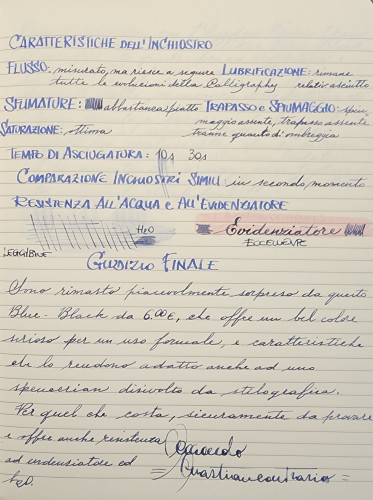 CARATTERISTICHE DELL'INCHIOSTRO
FLUSSO: misurato, ma riesce a seguire LUBRIFICAZIONE: rimane
tutte le evoluzioni della Calligraphy relativ asciutto
SFUMATURE: abbastanza piatto TRAPASSO E SPIUMAGGIO: spiu-
maggio assente, trapasso assente
SATURAZIONE: ottima tranne quando si ombreggia
TEMPO DI ASCIUGATURA: 10s 30s
COMPARAZIONE INCHIOSTRI SIMILI: in secondo momento
RESISTENZA ALL'ACQUA E ALL'EVIDENZIATORE
H2O Evidenziatore
LEGGIBILE ECCELLENTE
GIUDIZIO FINALE
Sono rimasto piacevolmente sorpreso da questo
Blue-Black da 6.00€, che offre un bel colore
serioso per un uso formale, e caratteristiche
che lo rendono adatto anche ad uno
spencerian disinvolto da stilografica.
Per quel che costa, sicuramente da provare
e offre anche resistenza
ad evidenziatore ed
H2O.